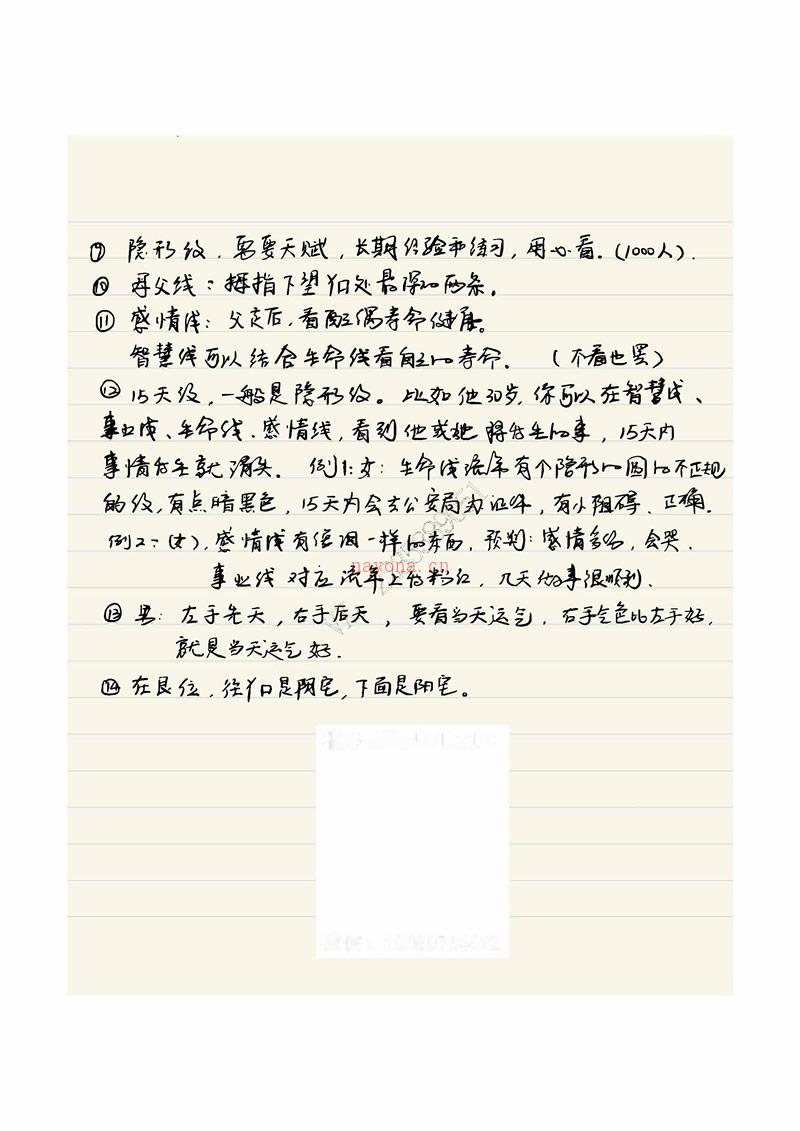 ⑨ 隐形纹，需要天赋，长期经验和练习，用心看。(1000人).
⑩ 母父线：拇指下 处最深的两条。
⑪ 感情线：父走后，看配偶寿命健康。
智慧线可以结合生命线看自己的寿命. (不看也罢)
⑫ 15天纹，一般是隐形纹。比如他30岁,你可以在智慧线、
事业线、生命线.感情线，看到他或她 将发生的事，15天内
事情发生就消失. 例1:女：生命线流年有个隐形的圆的不正规
的纹,有点暗黑色，15天内会去公安局办证件，有小阻碍. 正确.
例2：(女),感情线有 一样的东西，预判：感情多 ，会哭.
事业线 对应流年上发粉红，几天做事很顺利.
⑬ 男：左手先天，右手后天，要看当天运气，右手气色比左手好,
就是当天运气好.
⑭ 在艮位， 是阳宅,下面是阴宅。
nayona.cn